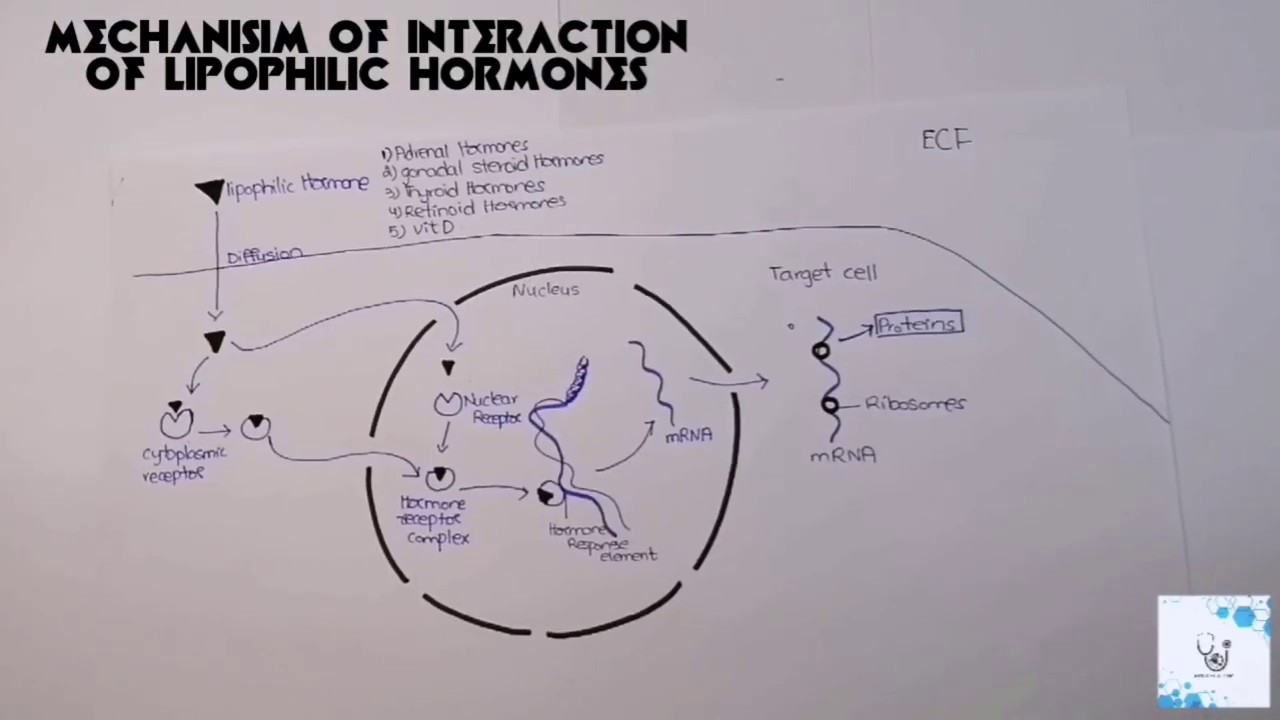 MECHANISIM OF INTERACTION
OF LIPOPHILIC HORMONES
ECF
1) Adrenal Hormones
2) gonadal steroid Hormones
3) Thyroid Hormones
4) Retinoid Hormones
5) Vit D
lipophilic Hormone
Diffusion
Target cell
Nucleus
Proteins
Nuclear
Receptor
Ribosomes
mRNA
mRNA
cytoplasmic
receptor
Hormone
receptor
complex
Hormone
Response
element